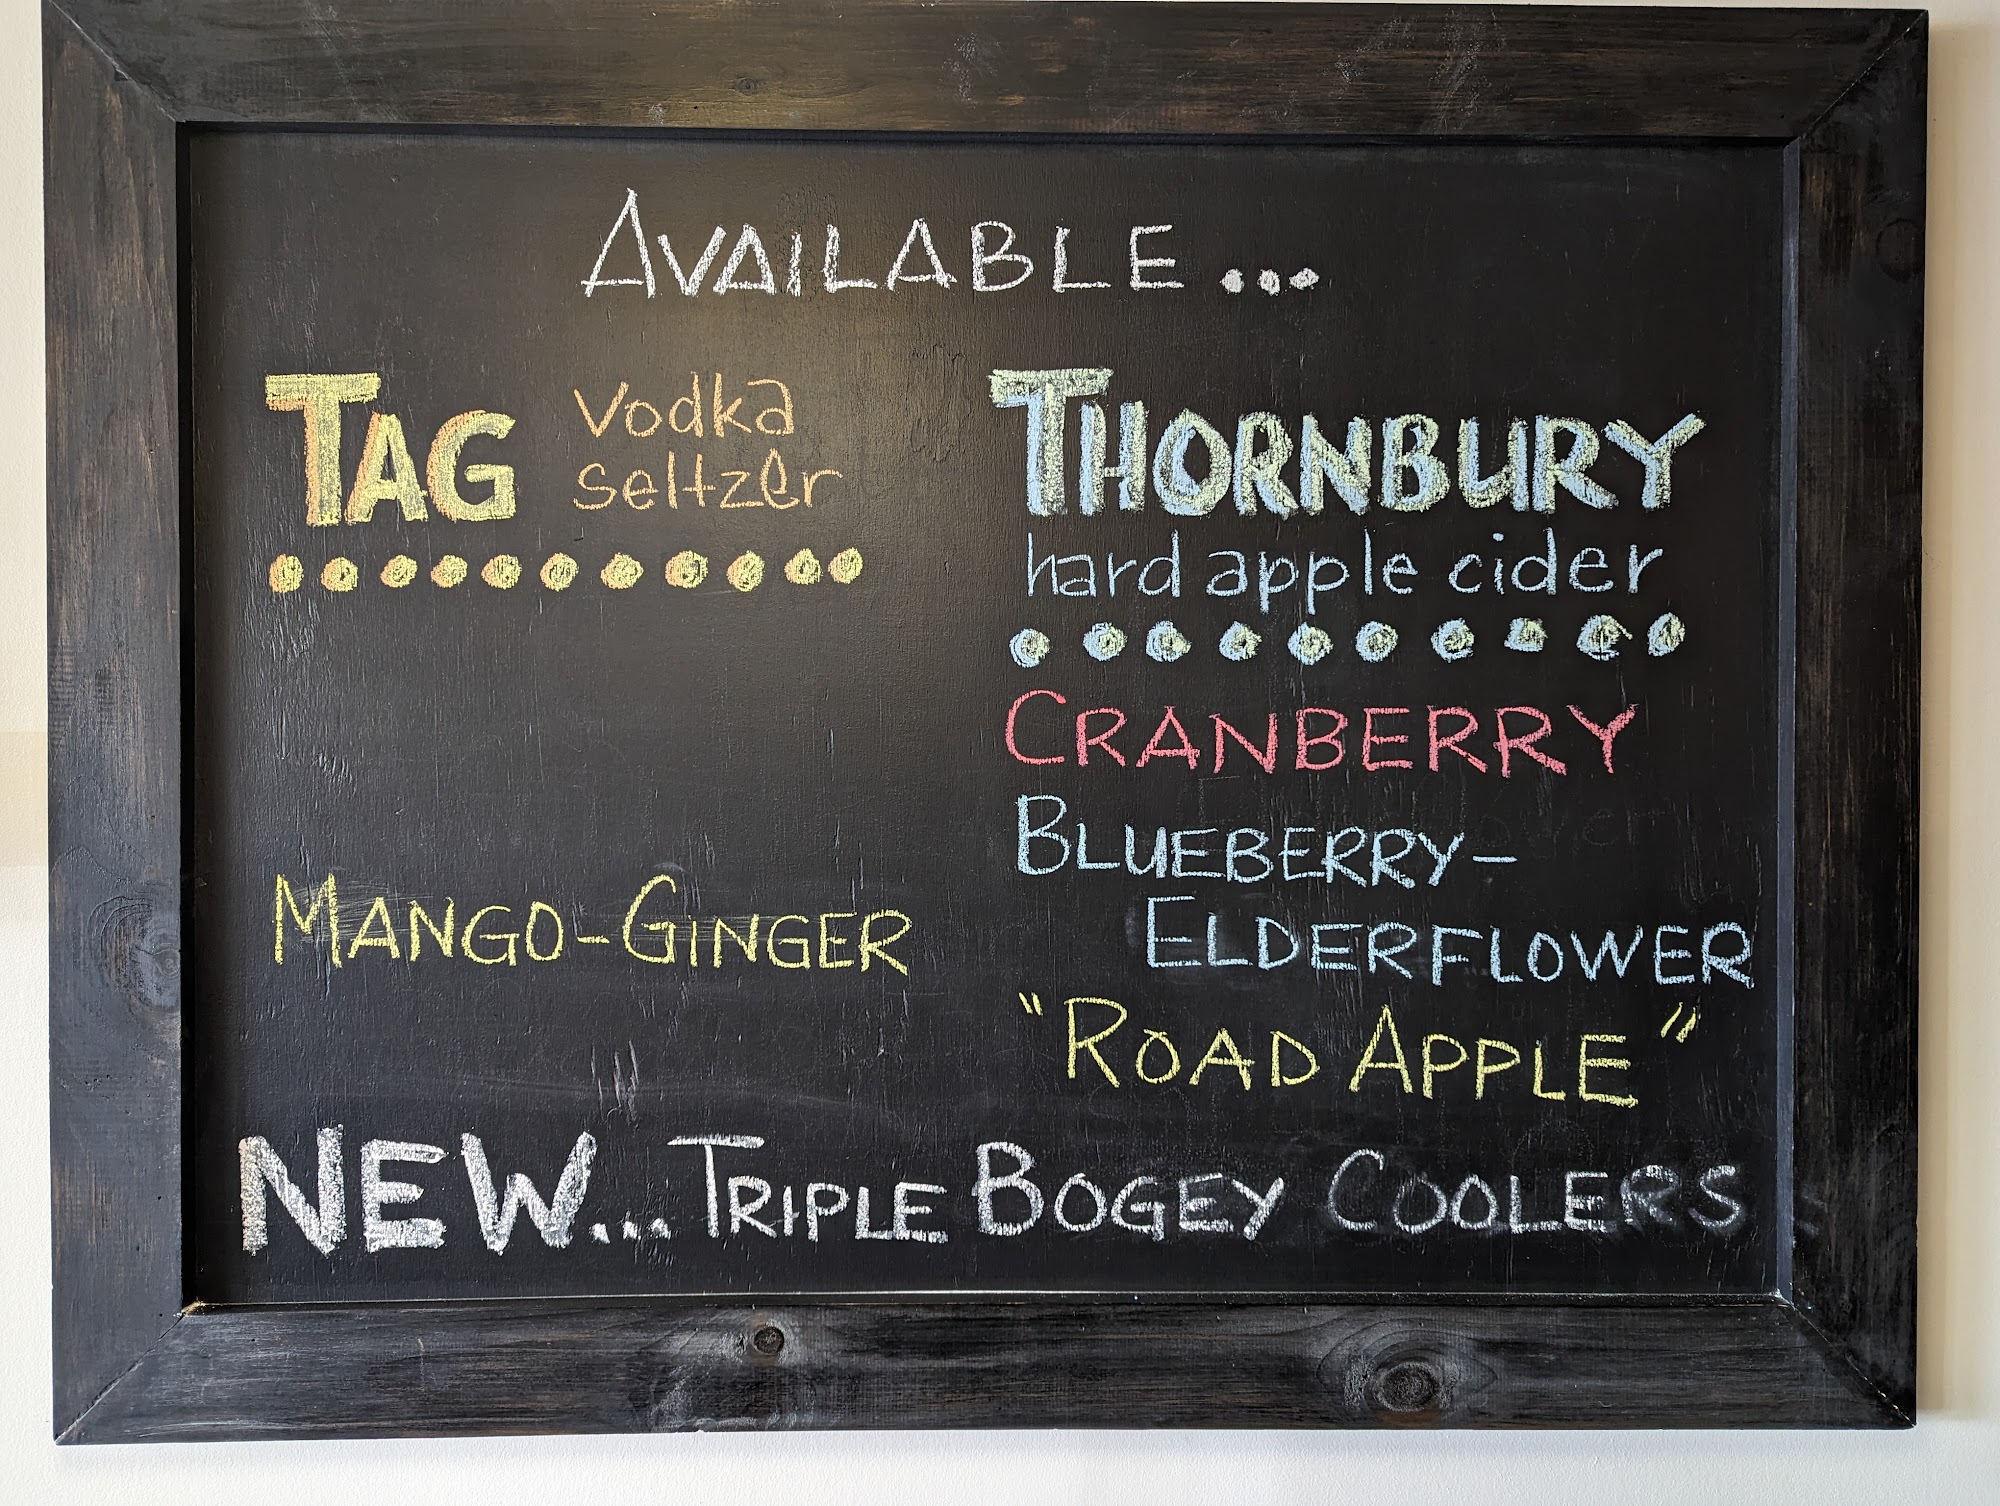 AVAILABLE...
TAG vodka seltzer
MANGO-GINGER
THORNBURY
hard apple cider
CRANBERRY
BLUEBERRY-
ELDERFLOWER
"ROAD APPLE"
NEW... TRIPLE BOGEY COOLERS